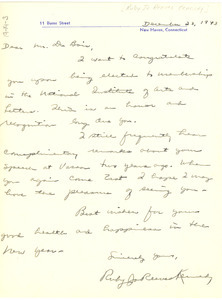 11 Barnes Street
New Haven, Connecticut
December 22, 1943
Dear Mr. Du Bois,
I want to congratulate
you upon being elected to membership
in the National Institute of Arts and
Letters. This is an honor and
recognition long due you.
I still frequently hear
complimentary remarks about your
speech at Vassar two years ago. When
you again come East I hope I may
have the pleasure of seeing you.
Best wishes for your
good health and happiness in the
new year.
Sincerely yours,
Ruby Jo Reeves Kennedy